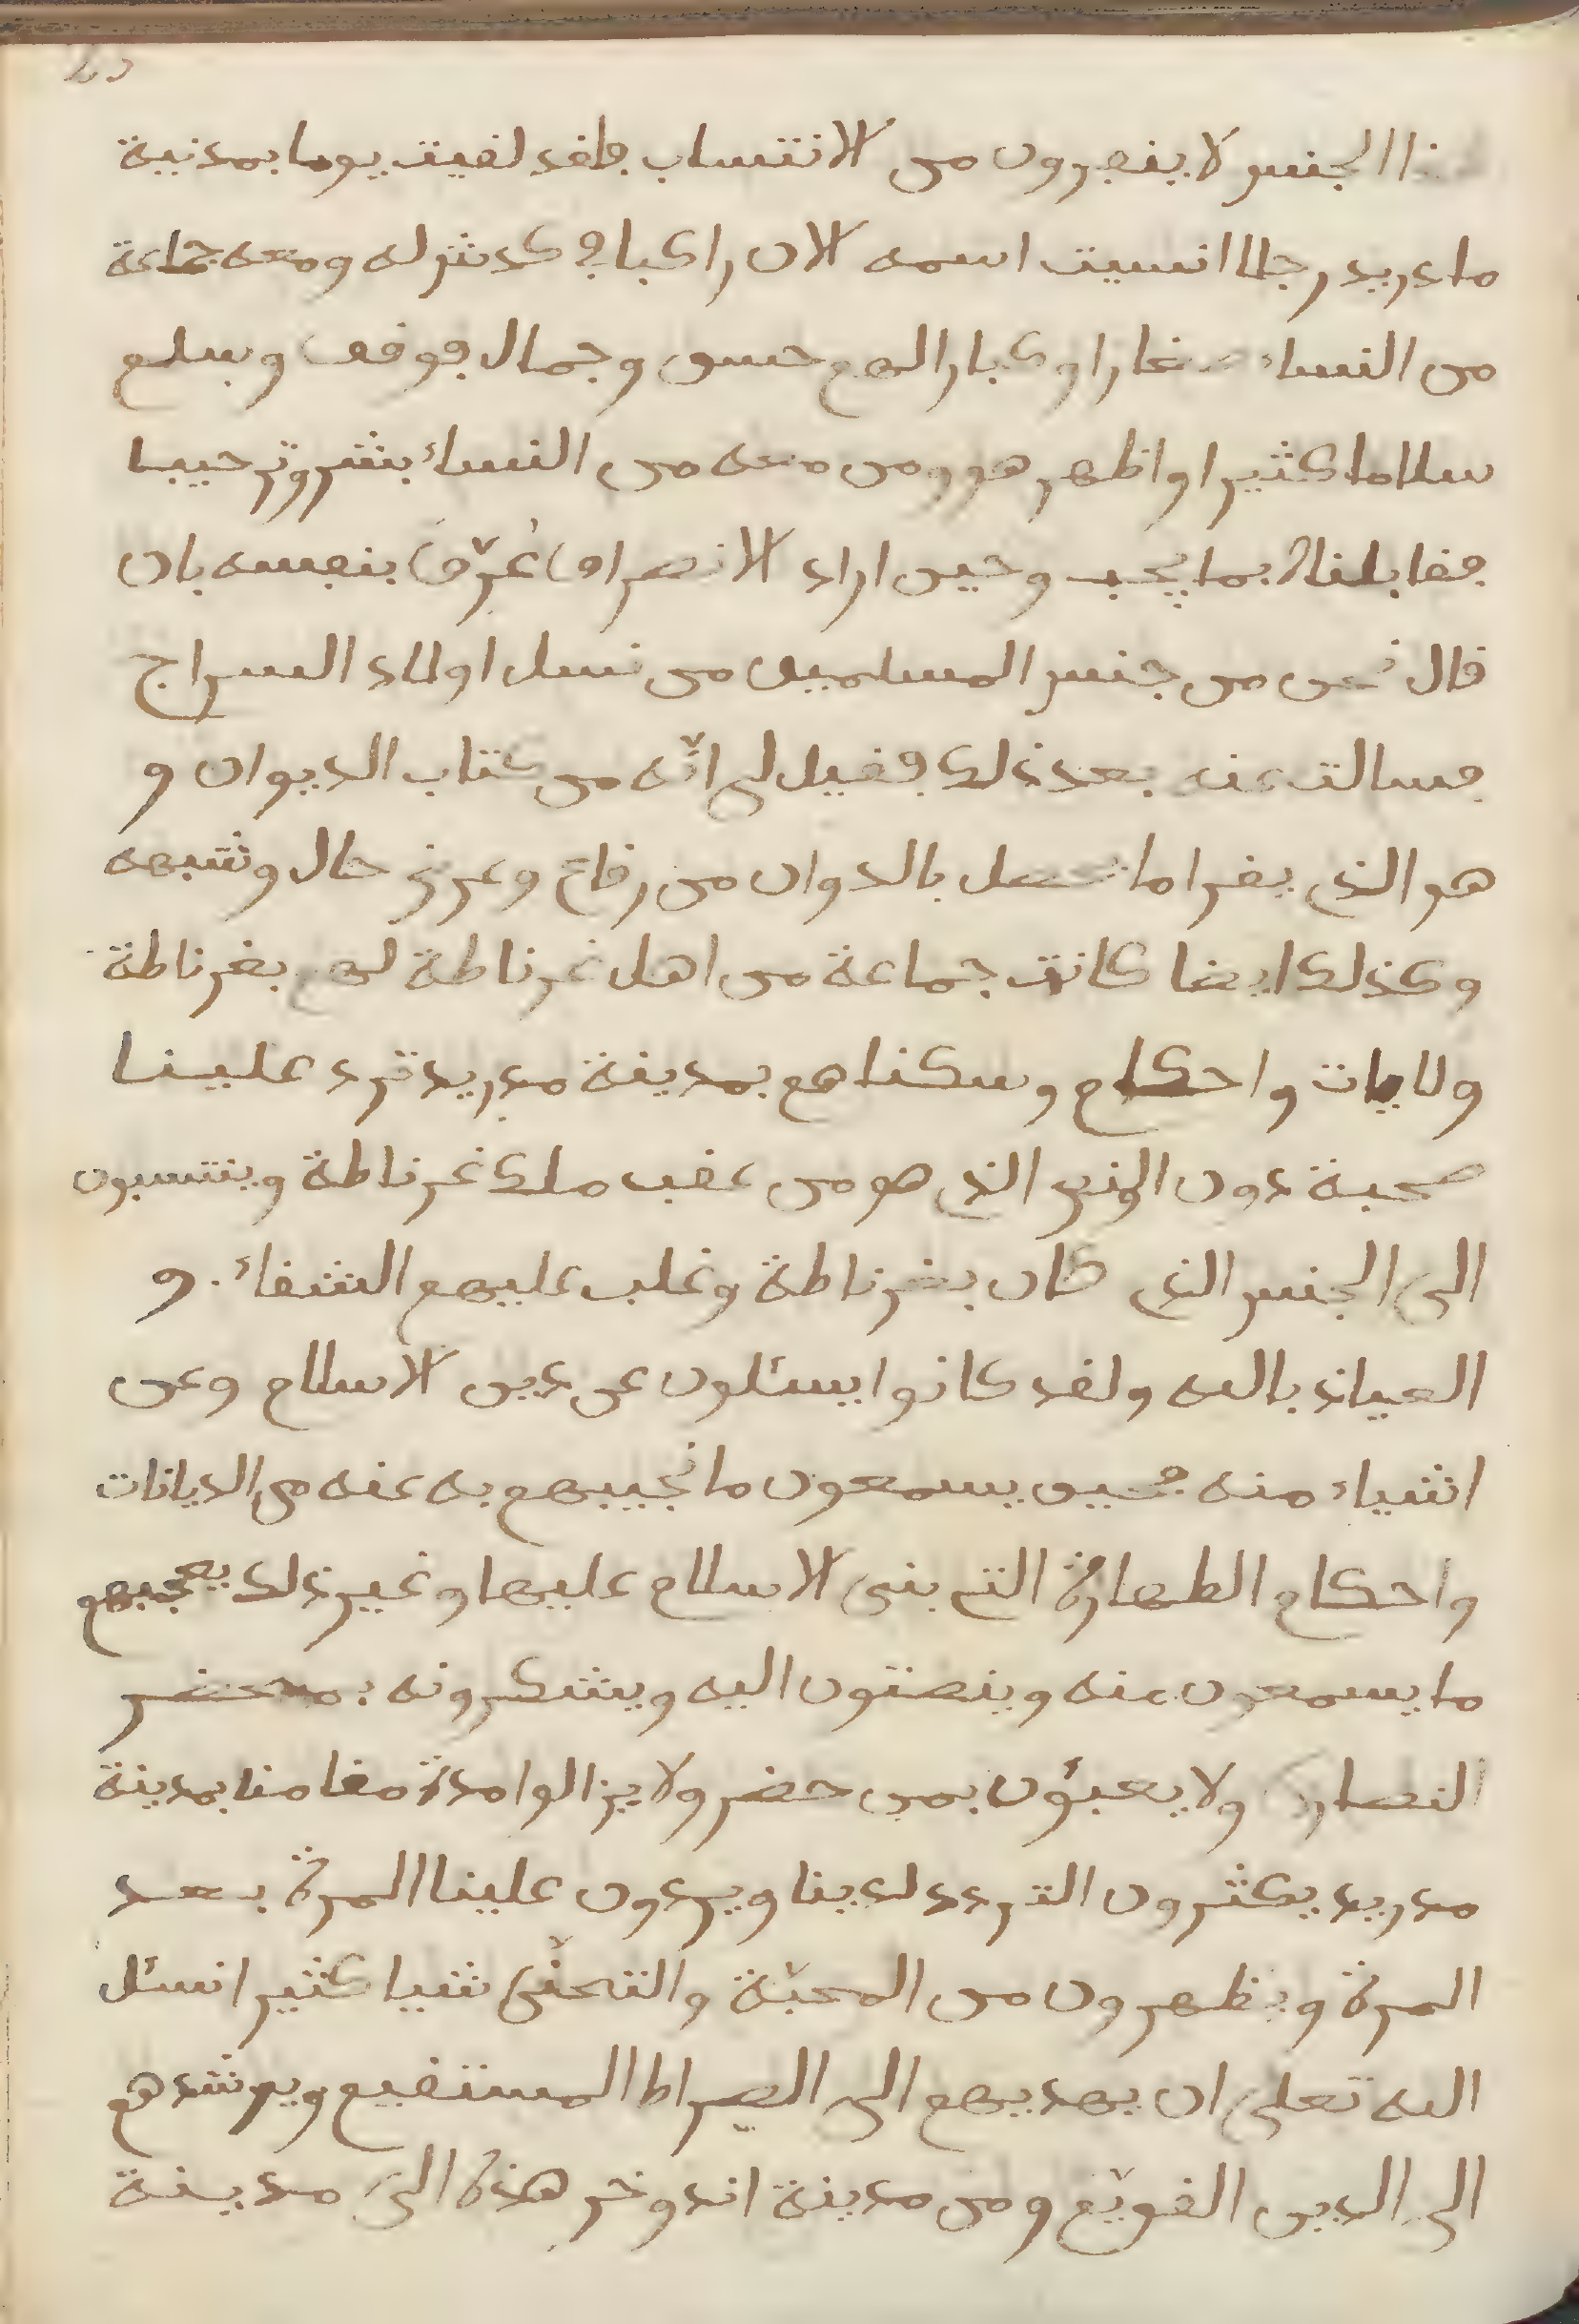 هذا الجنس لا ينفرون من الانتساب فلقد لقيت يوما بمدنية
مادريد رجلا انسيت اسمه الان راكبا في كدش له ومعه جماعة
من النساء صغارا وكبارا لهم حسن وجمال فوقف وسلم
سلاما كثيرا واظهر هو ومن معه من النساء بشر وترحيبا
فقابلناه بما يجب وحين اراد الانصراف عرّف بنفسه بان
قال نحن من جنس المسلمين من نسل اولاد السراج
فسالت عنه بعد ذلك فقيل لي انّه من كتاب الديوان و
هو الذي يقرا ما يحصل بالدوان من رقاع وعرض حال وشبهه
وكذلك ايضا كانت جماعة من اهل غرناطة لهم بغرناطة
ولايات واحكام وسكناهم بمدينة مدريد ترد علينا
صحبة دون الونص الذي هو من عقب ملك غرناطة وينتسبون
الى الجنس الذي كان بغرناطة وغلب عليهم الشقاء. و
العياذ بالله ولقد كانوا يسئلون عن دين الاسلام وعن
اشياء منه فحين يسمعون ما نجيبهم به عنه من الديانات
واحكام الطهارة التي بني الاسلام عليها وغير ذلك يعجبهم
ما يسمعون عنه وينصتون اليه ويشكرونه بمحضر
النصارى ولا يعبؤن بمن حضر ولا يزالوا مدة مقامنا بمدينة
مدريد يكثرون التردد لدينا ويردون علينا المرة بعد
المرة ويظهرون من المحبّة والتحنّى شيا كثيرا نسئل
الله تعلى ان يهديهم الى الصراط المستقيم ويرشدهم
الى الدين القويّم ومن مدينة اندوخر هذه الى مدينة